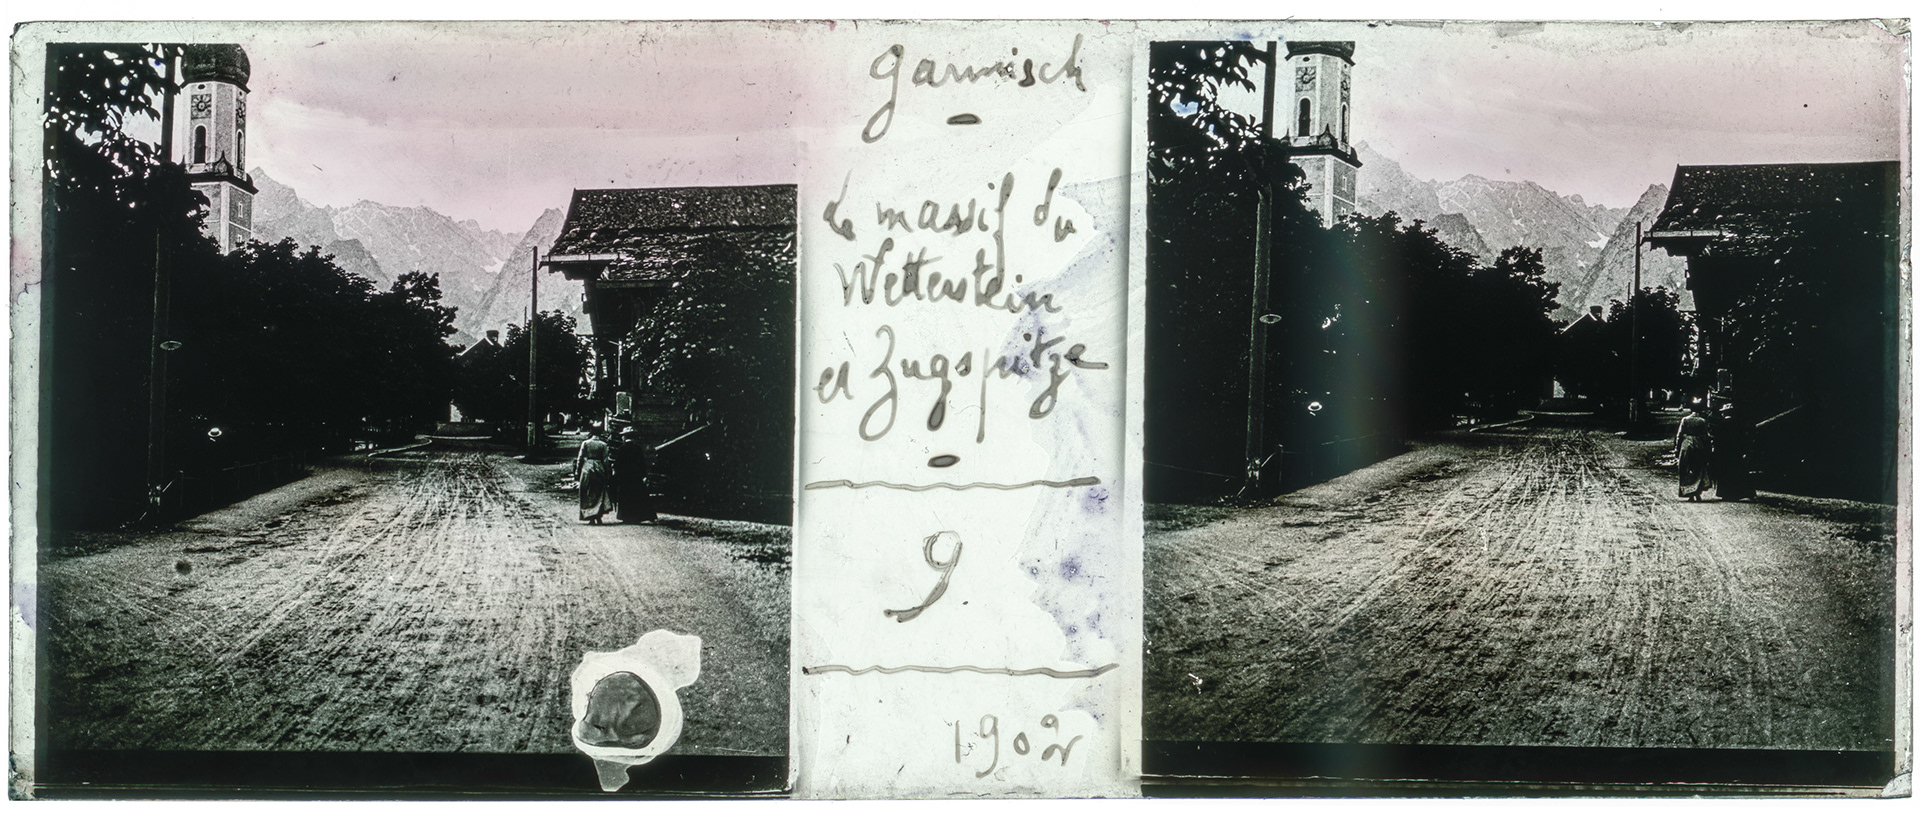 Garmisch
Le massif du
Wetterstein
et Zugspitze
9.